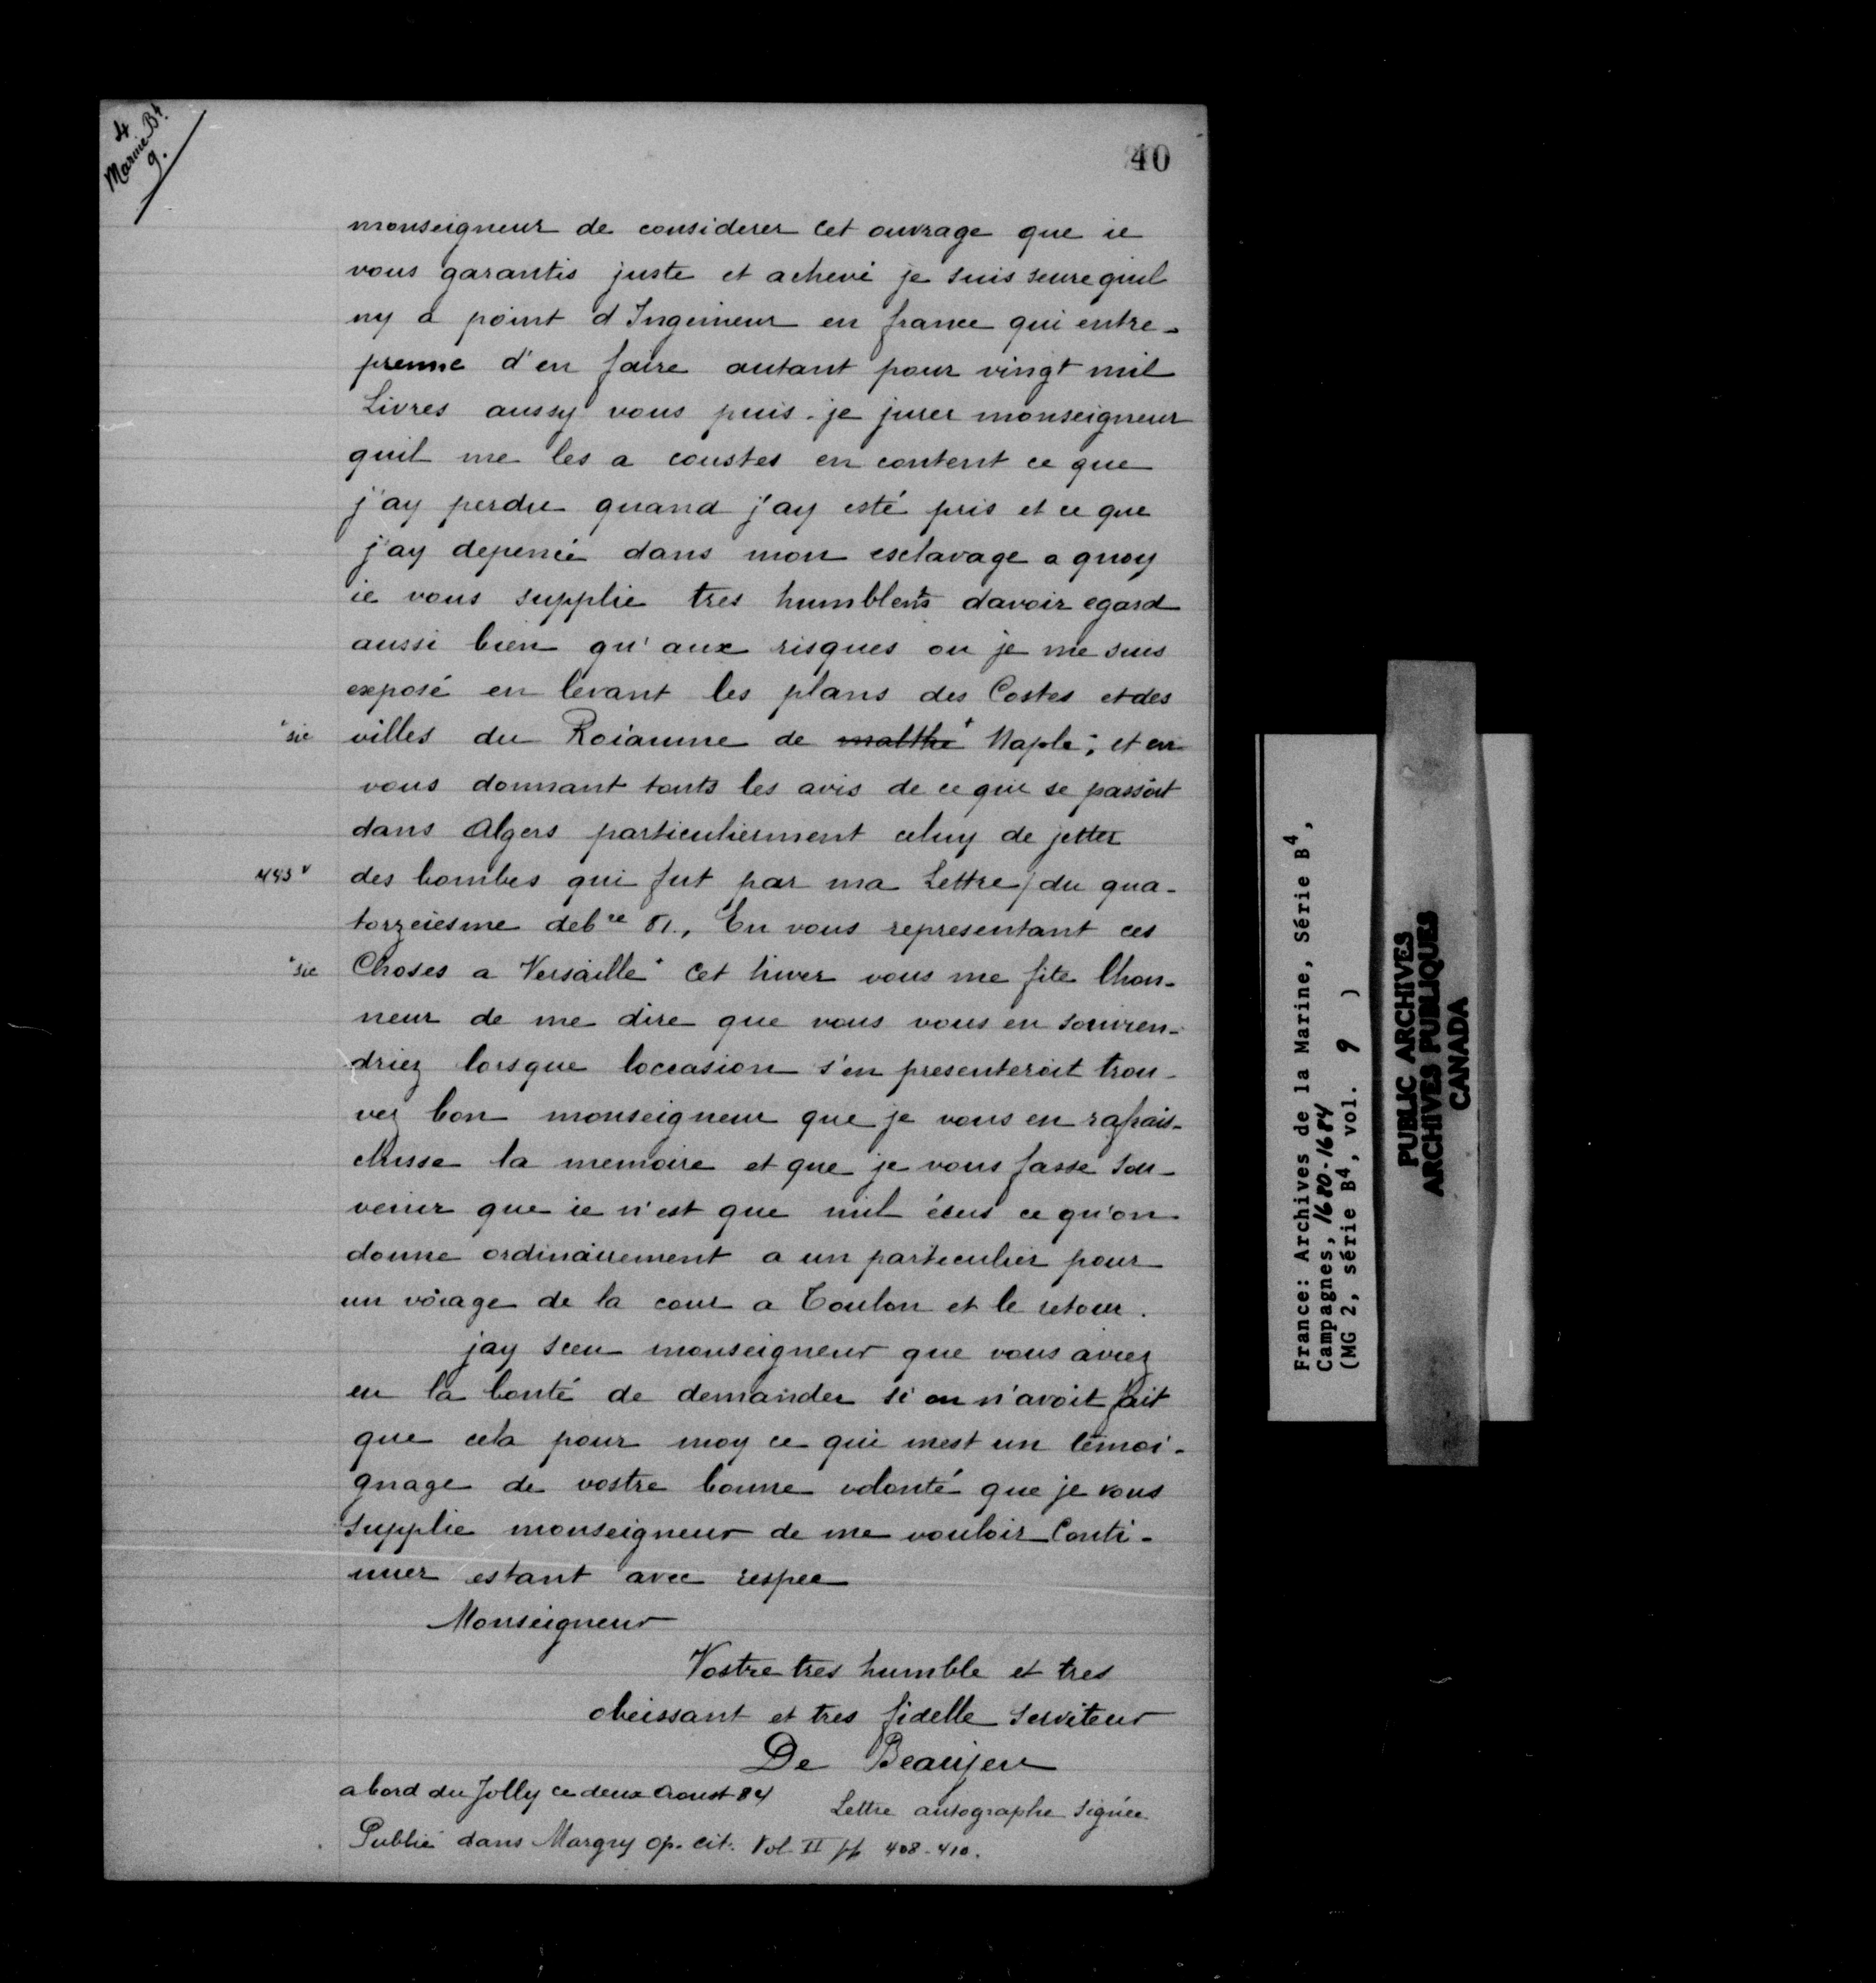 4
Marine B4.
9.
40
monseigneur de considerer cet ouvrage que ie
vous garantis juste et achevé je suis seure quil
ny a point d'Ingenieur en france qui entre-
prenne d'en faire autant pour vingt mil
Livres aussy vous puis-je jurer monseigneur
quil me les a coustés en contant ce que
j'ay perdu quand j'ay esté pris et ce que
j'ay depensé dans mon esclavage a quoy
ie vous supplie tres humblemt davoir egard
aussi bien qu'aux risques ou je me suis
exposé en levant les plans des Costes et des
+sic villes du Roiaume de malthe+ Naple; et en
vous donnant touts les avis de ce qui se passoit
dans Algers particulierment celuy de jetter
443 v des bombes qui fut par ma Lettre / du qua-
torzeiesme debre 81., En vous representant ces
+sic Choses a Versaille+ cet hiver vous me fite lhon-
neur de me dire que vous vous en souvien-
driez lorsque loccasion s'en presenteroit trou-
vez bon monseigneur que je vous en rafrais-
chisse la memoire et que je vous fasse sou-
venir que ie n'est que mil écus ce qu'on
donne ordinairement a un particulier pour
un voiage de la cour a Toulon et le retour.
jay sceu monseigneur que vous aviez
eu la bonté de demander si on n'avoit fait
que cela pour moy ce qui mest un témoi-
gnage de vostre bonne volonté que je vous
supplie monseigneur de me vouloir Conti-
nuer estant avec respec
Monseigneur
Vostre tres humble et tres
obeissant et tres fidelle Serviteur
De Beaujeu
abord du Jolly ce deux Aoust 84
Lettre autographe signée
Publié dans Margry op. cit. Vol. II pp 408-410.
France: Archives de la Marine, Série B4,
Campagnes, 1680-1684
(MG 2, série B4, vol. 9 )
PUBLIC ARCHIVES
ARCHIVES PUBLIQUES
CANADA